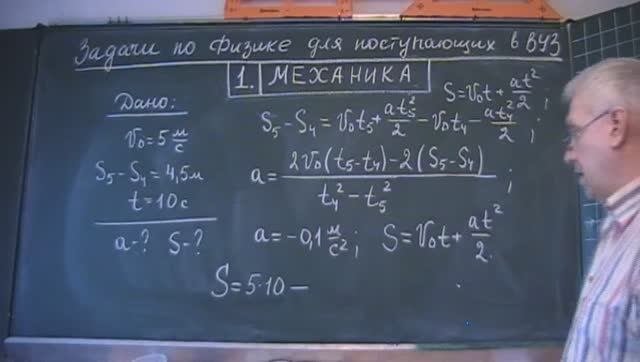 Задачи по физике для поступающих в ВУЗ
1. МЕХАНИКА
Дано:
v₀ = 5 м/с
S₅ − S₄ = 4,5 м
t = 10 с
a - ? S - ?
S = v₀t + at²/2 ;
S₅ − S₄ = v₀t₅ + at₅²/2 − v₀t₄ − at₄²/2 ;
a = 2v₀(t₅ − t₄) − 2(S₅ − S₄) / t₄² − t₅² ;
a = −0,1 м/с² ; S = v₀t + at²/2.
S = 5·10 −